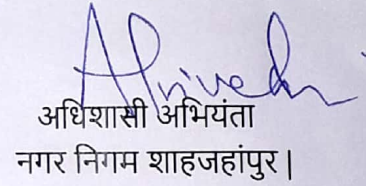 अधिशासी अभियंता
नगर निगम शाहजहांपुर |